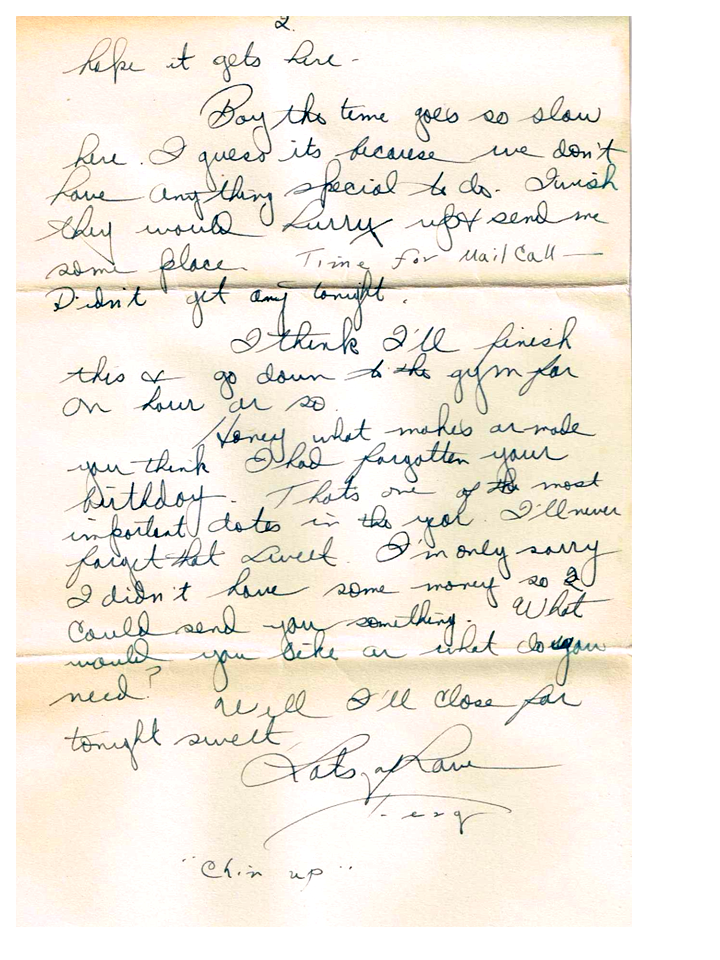 2.
hope it gets here -
Boy the time goes so slow
here. I guess its because we don't
have anything special to do. I wish
they would hurry up & send me
some place. Time for Mail Call —
Didn't get any tonight.
I think I'll finish
this & go down to the gym for
an hour or so.
Honey what makes or made
you think I had forgotten your
birthday. Thats one of the most
important dates in the year. I'll never
forget that sweet. I'm only sorry
I didn't have some money so I
could send you something. What
would you like or what do you
need?
Well I'll close for
tonight sweet
Lots of Love
"Chin up"